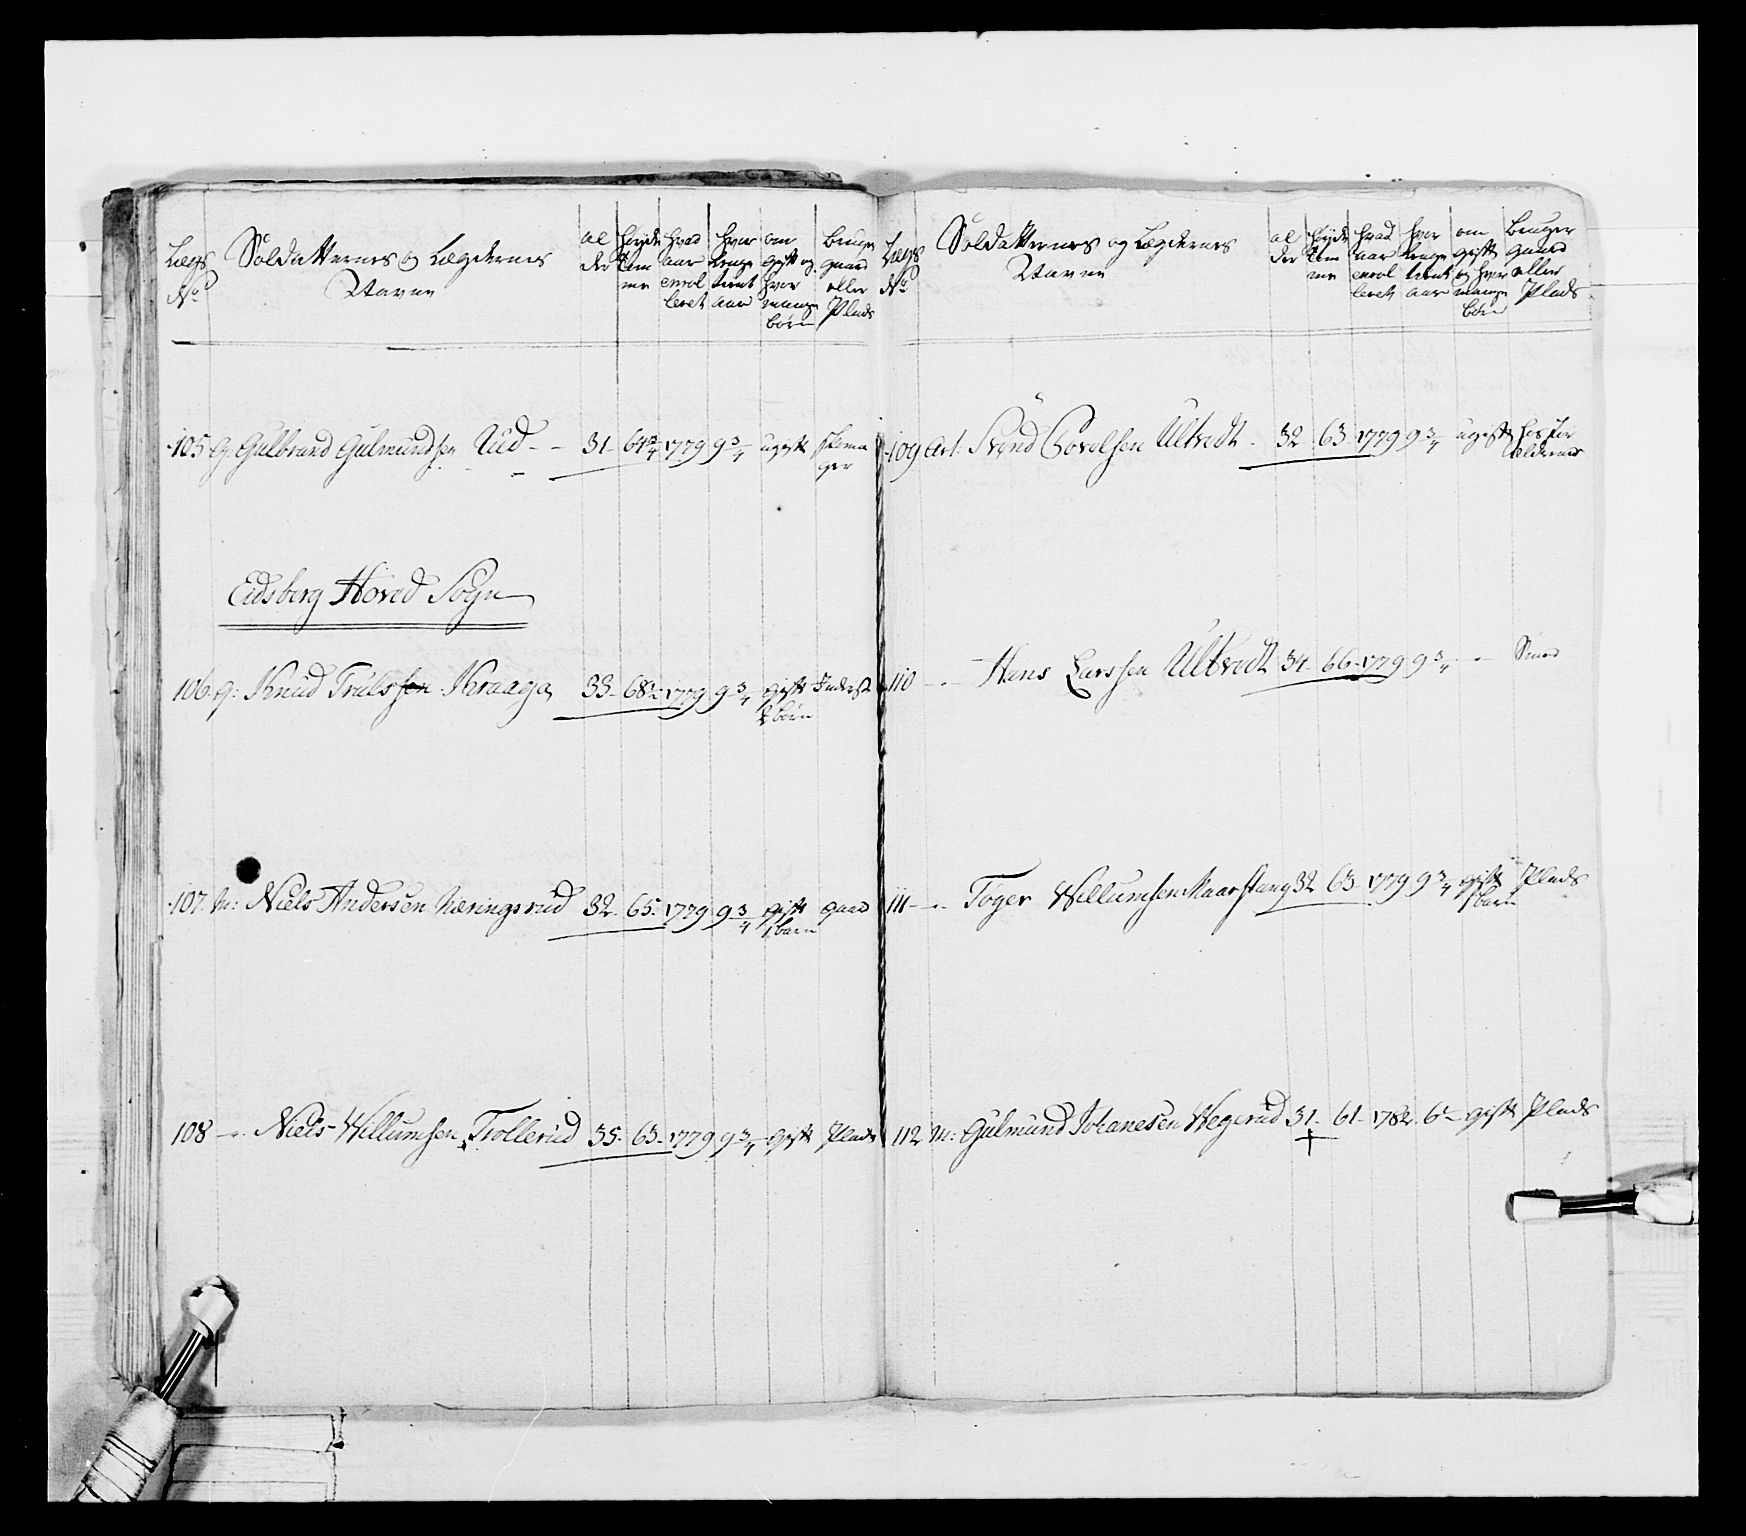 Lægs
No
Soldatternes og Lægdernes
Navne
al
der
høyde
tom
me
hvad
aar
enrol
leret
hvor
lenge
tient
aar
om
gift og
hvor
mange
børn
Bruger
gaard
eller
Plads
105 g: Gulbrand Gulmundsen Rud - - 31 - 64 3/4 1779 9 3/4 ugift
Eidsberg Hoved Sogn
106 g: Knud Trulssen Kraaga 33 - 68 1779 9 3/4 gift Inderst
2 børn
107. m: Niels Andersen Næringsrud 32 - 65 - 1779 9 3/4 gift gaard
1 barn
108 - Niels Willumsen Trollerud 35 - 63 - 1779 9 3/4 gift Plads
Lægs
No
Soldatternes og Lægdernes
Navne
al
der
høyde
tom
me
hvad
aar
enrol
leret
hvor
lenge
tient
aar
om
gift
og hvor
mange
børn
Bruger
gaard
eller
Plads
109 Art: Svend Ultvedt - 32 - 63 - 1779 9 3/4 ugift hos for
ældrene
110 - Hans Larssen Ultvedt 34 - 66 - 1779 9 3/4 - -
111 - Toger Willumsen Kaarstang 32 63 - 1779 9 3/4 gift Plads
1 barn
112 m: Gulmund Johanesen Hegerud 31 - 61 - 1782 - 6 - gift Plads